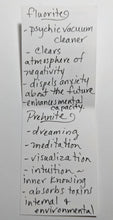 fluorite
- psychic vacuum
cleaner
- clears
atmosphere of
negativity
- dispels anxiety
about the future
- enhances mental
capacity
Prehnite
- dreaming
- meditation
- visualization
- intuition ~
inner knowing
- absorbs toxins
internal &
environmental